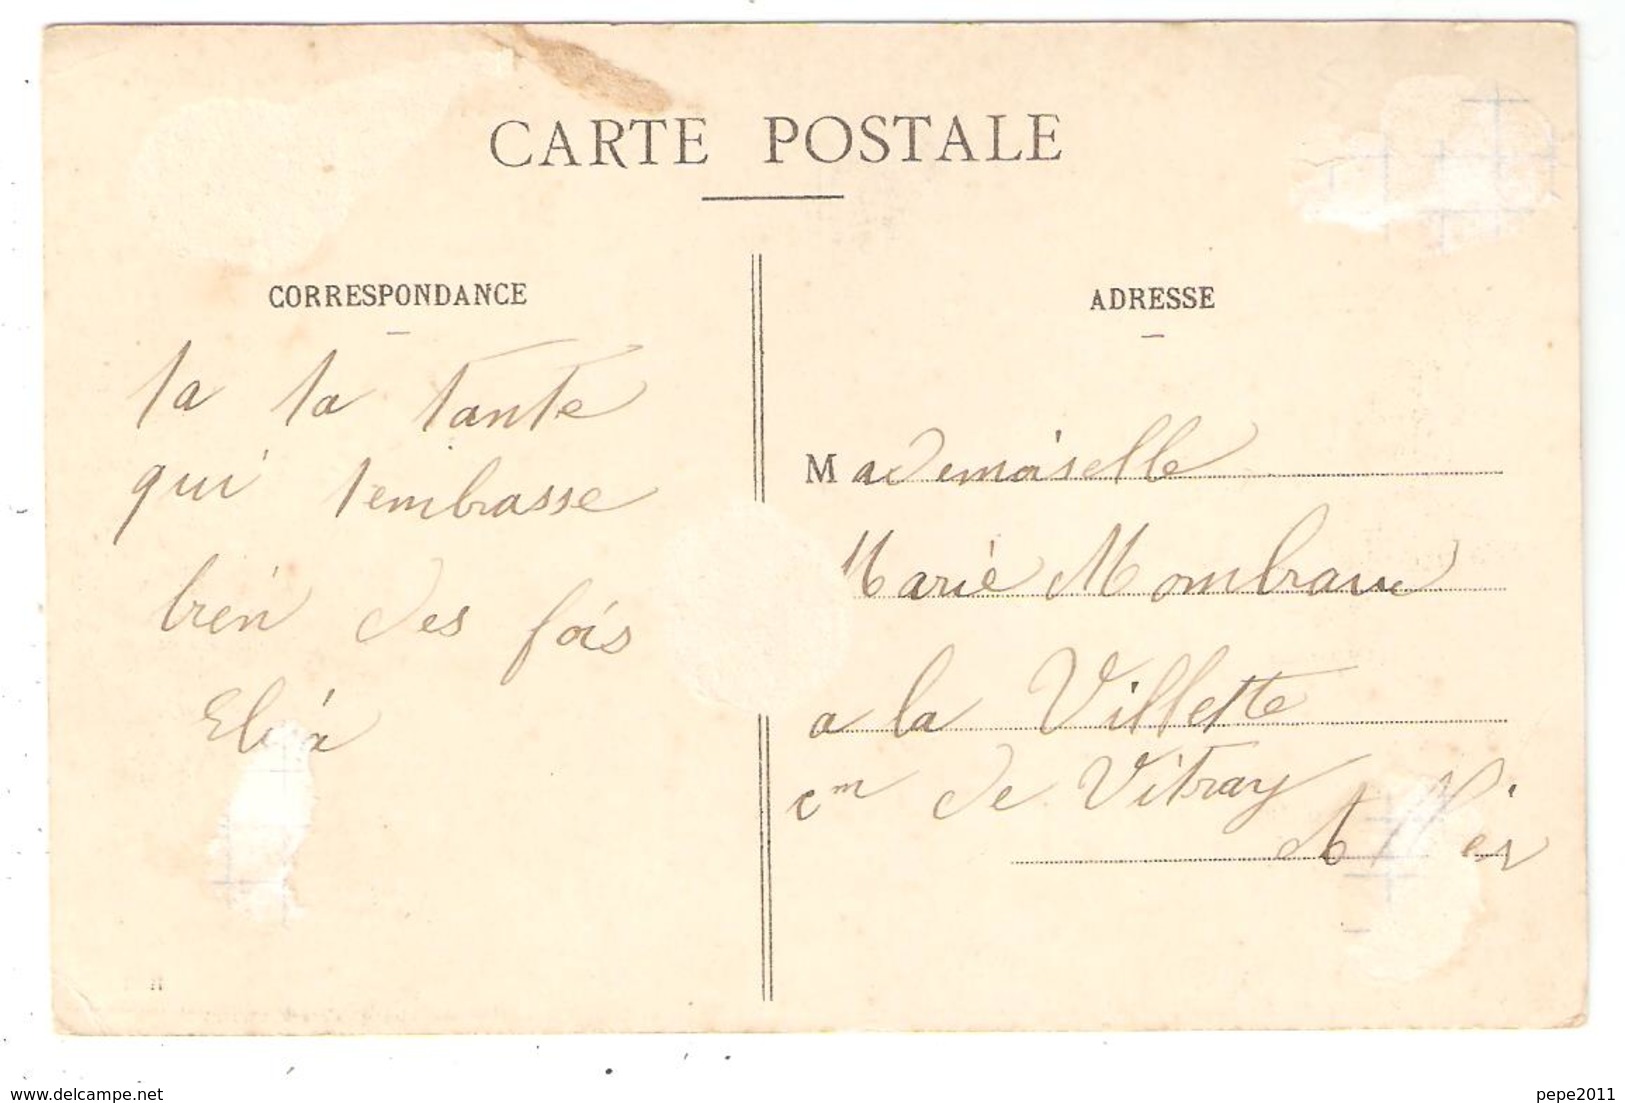 CARTE POSTALE
CORRESPONDANCE
ta ta tante
qui tembrasse
bien des fois
ADRESSE
Mademoiselle
Marie
a la Villette
cm de Vitray
Allier
www.delcampe.net
pepe2011